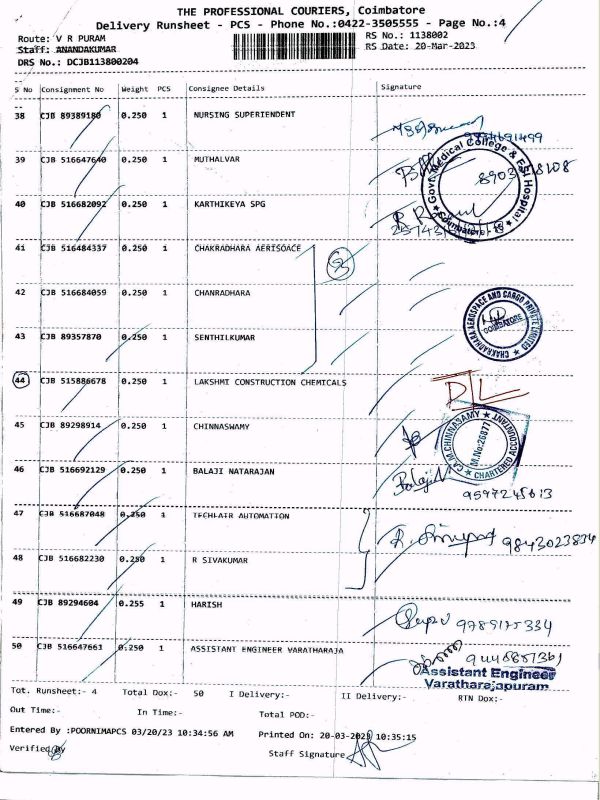 THE PROFESSIONAL COURIERS, Coimbatore
Delivery Runsheet - PCS - Phone No.:0422-3505555 - Page No.:4
Route: V R PURAM RS No.: 1138002
Staff: ANANDAKUMAR RS Date: 20-Mar-2023
DRS No.: DCJB113800204
S No Consignment No Weight PCS Consignee Details Signature
38 CJB 89389180 0.250 1 NURSING SUPERIENDENT
39 CJB 516647640 0.250 1 MUTHALVAR
Govt. Medical College & ESI Hospital
Coimbatore - 15
40 CJB 516682092 0.250 1 KARTHIKEYA SPG
41 CJB 516484337 0.250 1 CHAKRADHARA AERISOACE
3
42 CJB 516684059 0.250 1 CHANRADHARA
CHAKRADHARA AEROSPACE AND CARGO PRIVATE LIMITED
COIMBATORE
43 CJB 89357870 0.250 1 SENTHILKUMAR
44 CJB 515886678 0.250 1 LAKSHMI CONSTRUCTION CHEMICALS
D/L
45 CJB 89298914 0.250 1 CHINNASWAMY
CA.M.CHINNASAMY
M.No:26877
CHARTERED ACCOUNTANT
46 CJB 516692129 0.250 1 BALAJI NATARAJAN Balaji N
9597245613
47 CJB 516687048 0.250 1 TECHLAIR AUTOMATION
9843023834
48 CJB 516682230 0.250 1 R SIVAKUMAR
49 CJB 89294604 0.255 1 HARISH 9789175334
50 CJB 516647661 0.250 1 ASSISTANT ENGINEER VARATHARAJA
Assistant Engineer
Varatharajapuram
Tot. Runsheet:- 4 Total Dox:- 50 I Delivery:- II Delivery:- RTN Dox:-
Out Time:- In Time:- Total POD:-
Entered By :POORNIMAPCS 03/20/23 10:34:56 AM Printed On: 20-03-2023 10:35:15
Verified By Staff Signature